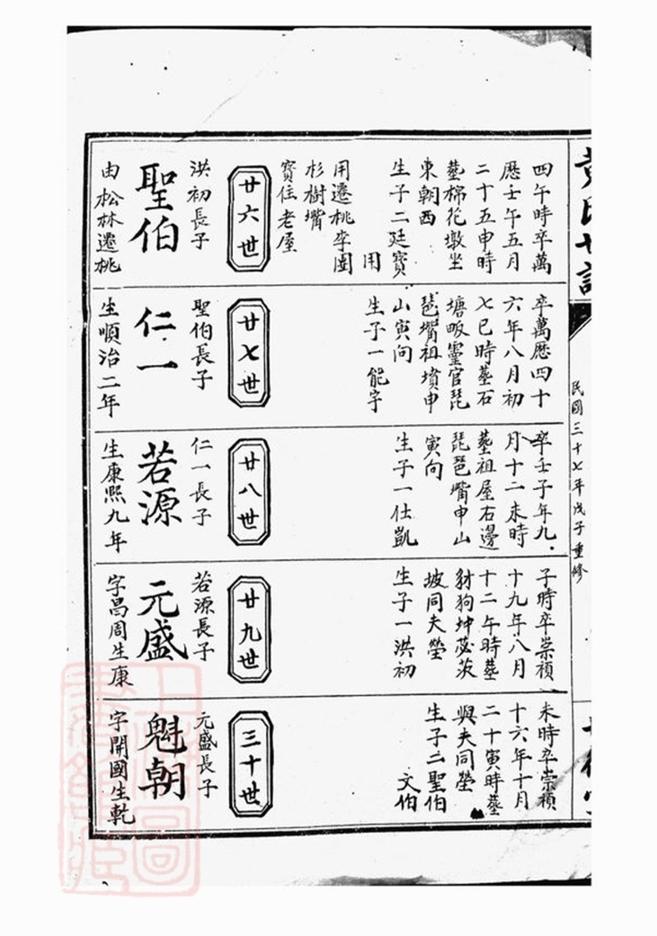 民國三十七年戊子重修
四午時卒萬
歷壬午五月
二十五申時
塟棉花墩坐
東朝西
生子二廷寶
用
用遷桃李園
杉樹嘴
寳住老屋
廿六世
洪初長子
聖伯
由松林遷桃
卒萬歷四十
六年八月初
七巳時塟石
塘畈靈官琵
琶嘴祖墳申
山寅向
生子一能字
廿七世
聖伯長子
仁一
生順治二年
卒壬子年九
月十二未時
塟祖屋右邊
琵琶嘴申山
寅向
生子一仕凱
廿八世
仁一長子
若源
生康熙九年
子時卒崇禎
十九年八月
十二午時塟
豺狗坤苾茨
坡同夫塋
生子一洪初
廿九世
若源長子
元盛
字昌周生康
未時卒崇禎
十六年十月
二十寅時塟
與夫同塋
生子二聖伯
文伯
三十世
元盛長子
魁朝
字開國生乾